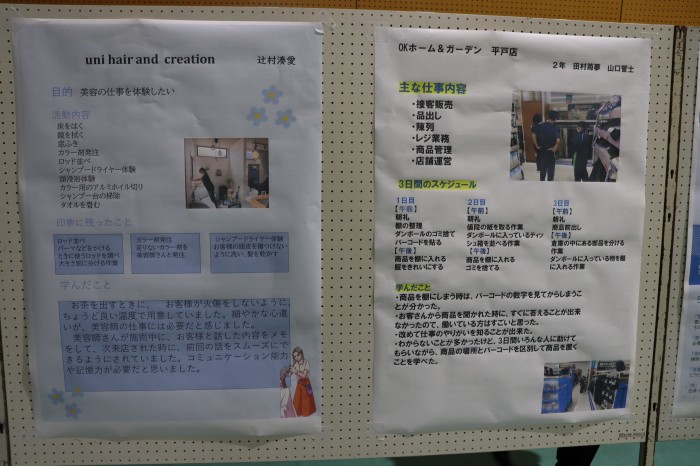 uni hair and creation
辻村湊愛
目的 美容の仕事を体験したい
活動内容
床をはく
鏡を拭く
窓ふき
カラー剤発注
ロッド並べ
シャンプードライヤー体験
頭浸浴体験
カラー用のアルミホイル切り
シャンプー台の掃除
タオルを畳む
印象に残ったこと
ロッド並べ
パーマなどをかける
ときに使うロッドを調べ
大きさ別に分ける作業
カラー剤発注
足りないカラー剤を
美容師さんと発注
シャンプードライヤー体験
お客様の頭皮を傷つけない
ように洗い、髪を乾かす
学んだこと
お茶を出すときに、 お客様が火傷をしないように
ちょうど良い温度で用意していました。細やかな心遣
いが、美容師の仕事には必要だと感じました。
美容師さんが施術中に、お客様と話した内容をメモ
をして、次来店された時に、前回の話をスムーズにで
きるようにされていました。コミュニケーション能力
や記憶力が必要だと思いました。
OKホーム＆ガーデン 平戸店
２年 田村苺夢 山口誓士
主な仕事内容
・接客販売
・品出し
・陳列
・レジ業務
・商品管理
・店舗運営
3日間のスケジュール
1日目
【午前】
朝礼
棚の整理
ダンボールのゴミ捨て
バーコードを貼る
【午後】
商品を棚に入れる
服をきれいにする
2日目
【午前】
朝礼
値段の紙を取る作業
ダンボールに入っているティッ
シュ箱を並べる作業
【午後】
商品を棚に入れる
ゴミを捨てる
3日目
【午前】
朝礼
商品前出し
【午後】
倉庫の中にある部品を分ける
作業
ダンボールに入っている物を棚
に入れる作業
学んだこと
・商品を棚にしまう時は、バーコードの数字を見てからしまうこ
とが分かった。
・お客さんから商品を聞かれた時に、すぐに答えることが出来
なかったので、働いている方はすごいと思った。
・改めて仕事のやりがいを知ることが出来た。
・わからないことが多かったけど、3日間いろんな人に助けて
もらいながら、商品の場所とバーコードを区別して商品を置く
ことを学べた。